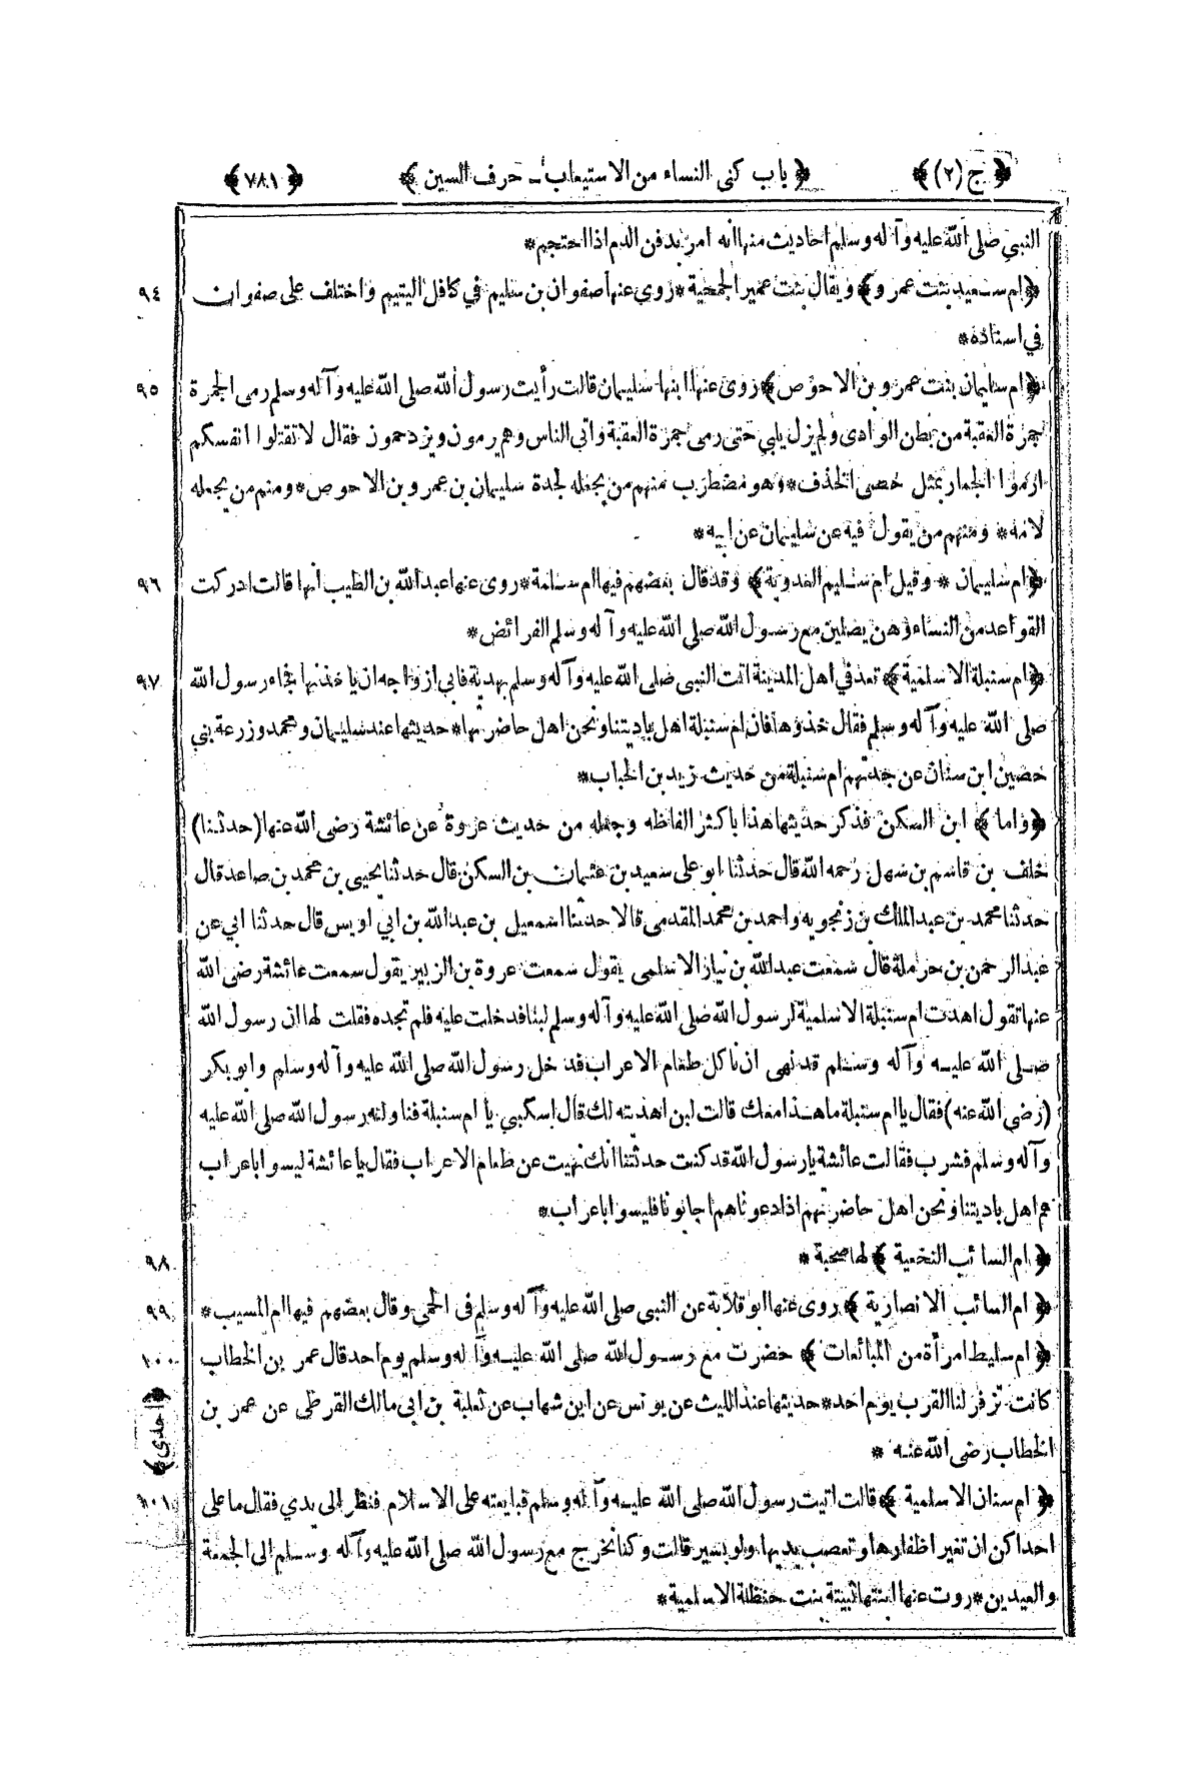 ﴿ ج (٢) ﴾ ﴿ باب كنى النساء من الاستيعاب ـ حرف السين ﴾ ﴿ ٧٨١ ﴾
النبي صلى الله عليه وآله وسلم احاديث منها انه امر بدفن الدم اذا احتجم *
﴿ ام سعيد بنت عمرو ﴾ ويقال بنت عمير الجمحية * روي عنها صفوان بن سليم في كافل اليتيم واختلف على صفوان ٩٤
في اسناده *
﴿ ام سليمان بنت عمرو بن الاحوص ﴾ روى عنها ابنها سليمان قالت رأيت رسول الله صلى الله عليه وآله وسلم رمى الجمرة ٩٥
جمرة العقبة من بطن الوادى ولم يزل يلبي حتى رمى جمرة العقبة واتى الناس وهم يرمون ويزدحمون فقال لا تقتلوا انفسكم
ارموا الجمار بمثل حصى الخذف * وهو مضطرب منهم من يجعله لجدة سليمان بن عمرو بن الاحوص * ومنهم من يجعله
لامه * ومنهم من يقول فيه عن سليمان عن ابيه *
﴿ ام سليمان * وقيل ام سليم العدوية ﴾ وقد قال بعضهم فيها ام سلمة * روى عنها عبد الله بن الطيب انها قالت ادركت ٩٦
القواعد من النساء وهن يصلين مع رسول الله صلى الله عليه وآله وسلم الفرائض *
﴿ ام سنبلة الاسلمية ﴾ تعد في اهل المدينة اتت النبى صلى الله عليه وآله وسلم بهدية فابى ازواجه ان ياخذنها فجاء رسول الله ٩٧
صلى الله عليه وآله وسلم فقال خذوها فان ام سنبلة اهل باديتنا ونحن اهل حاضرتها * حديثها عند سليمان ومحمد وزرعة بني
حصين ابن سنان عن جدتهم ام سنبلة من حديث زيد بن الحباب *
﴿ واما ﴾ ابن السكن فذكر حديثها هذا باكثر الفاظه وجعله من حديث عروة عن عائشة رضى الله عنها (حدثنا)
خلف بن قاسم بن سهل رحمه الله قال حدثنا ابو على سعيد بن عثمان بن السكن قال حدثنا يحيى بن محمد بن صاعد قال
حدثنا محمد بن عبد الملك بن زنجويه واحمد بن محمد المقدمى قالا حدثنا اسمعيل بن عبد الله بن ابي اويس قال حدثنا ابي عن
عبد الرحمن بن حرملة قال سمعت عبد الله بن نيار الاسلمى يقول سمعت عروة بن الزبير يقول سمعت عائشة رضى الله
عنها تقول اهدت ام سنبلة الاسلمية لرسول الله صلى الله عليه وآله وسلم لبنا فدخلت عليه فلم تجده فقلت لها ان رسول الله
صلى الله عليه وآله وسلم قد نهى ان ناكل طعام الاعراب فدخل رسول الله صلى الله عليه وآله وسلم وابو بكر
(رضى الله عنه) فقال يا ام سنبلة ما هذا معك قالت لبن اهديته لك قال اسكبي يا ام سنبلة فناولته رسول الله صلى الله عليه
وآله وسلم فشرب فقالت عائشة يا رسول الله قد كنت حدثتنا انك نهيت عن طعام الاعراب فقال يا عائشة ليسوا باعراب
هم اهل باديتنا ونحن اهل حاضرتهم اذا دعوناهم اجابونا فليسوا باعراب *
﴿ ام السائب النخعية ﴾ لها صحبة * ٩٨
﴿ ام السائب الانصارية ﴾ روى عنها ابو قلابة عن النبى صلى الله عليه وآله وسلم فى الحمى وقال بعضهم فيها ام المسيب * ٩٩
﴿ ام سليط امرأة من المبائعات ﴾ حضرت مع رسول الله صلى الله عليه وآله وسلم يوم احد قال عمر بن الخطاب ١٠٠
كانت تزفر لنا القرب يوم احد * حديثها عند الليث عن يونس عن ابن شهاب عن ثعلبة بن ابى مالك القرظى عن عمر بن
الخطاب رضى الله عنه *
﴿ احدى ﴾
﴿ ام سنان الاسلمية ﴾ قالت اتيت رسول الله صلى الله عليه وآله وسلم فبايعته على الاسلام فنظر الى يدي فقال ما على ١٠١
احداكن ان تغير اظفارها وتعصب يديها ولو بسير قالت وكنا نخرج مع رسول الله صلى الله عليه وآله وسلم الى الجمعة
والعيدين * روت عنها ابنتها ثبيتة بنت حنظلة الاسلمية *